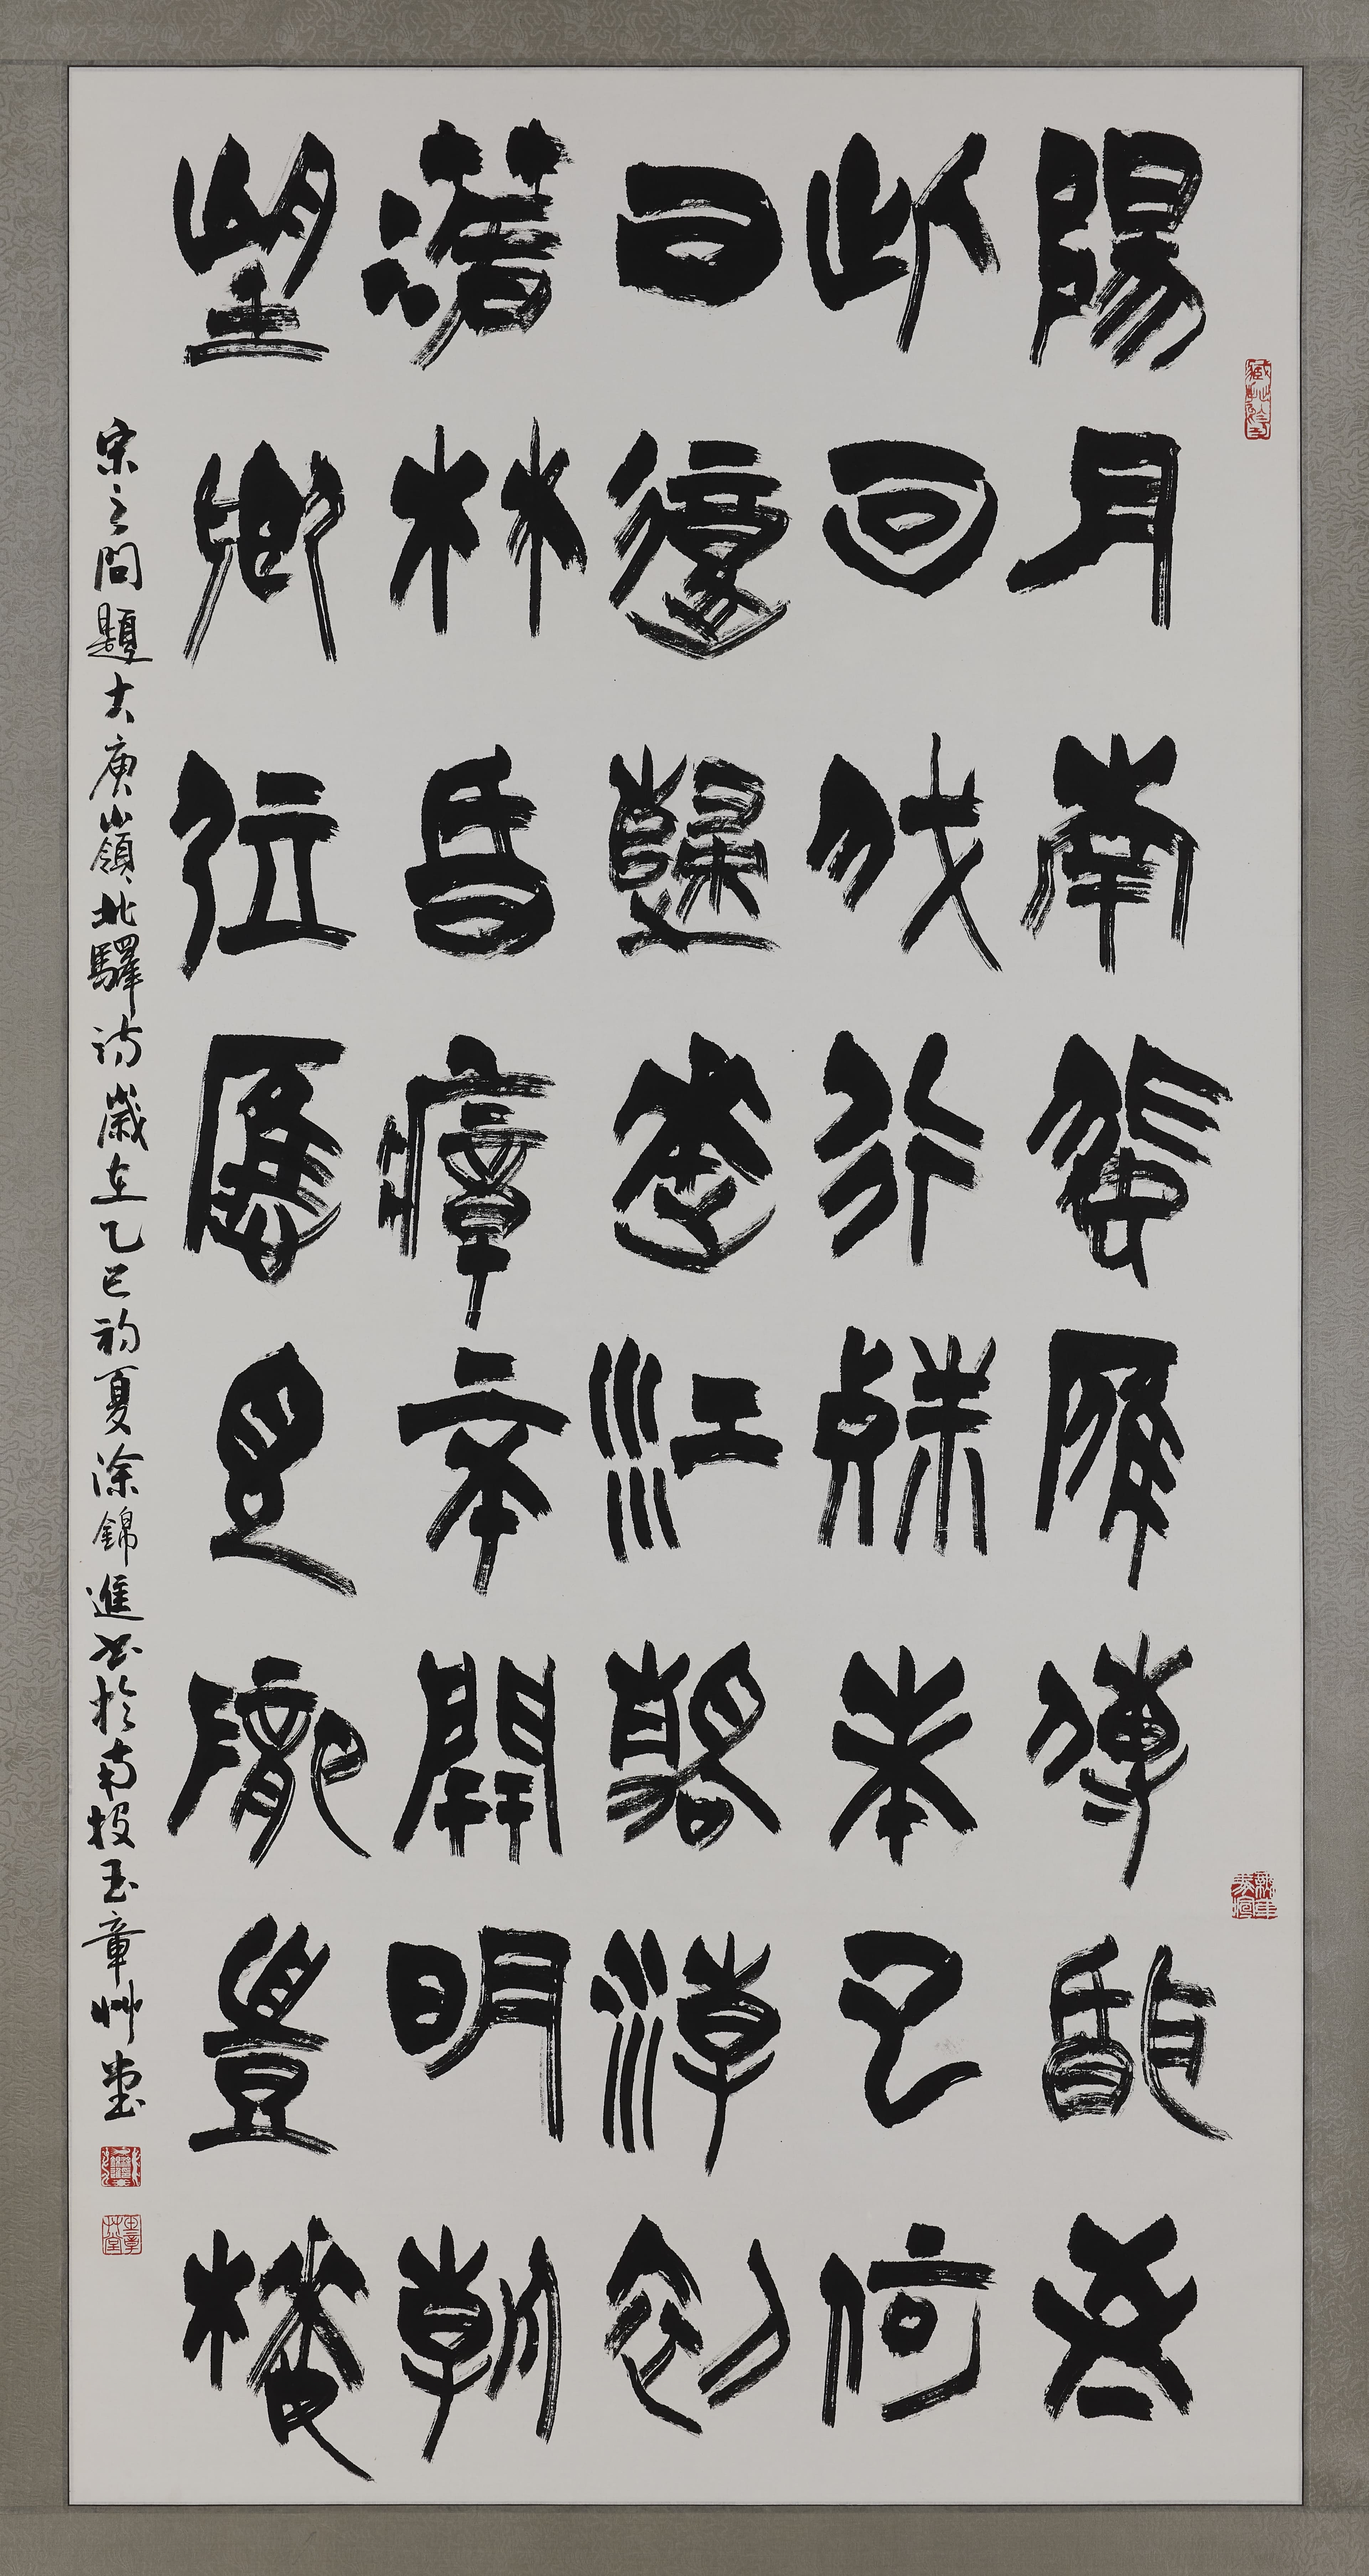 陽月南飛雁傳聞至
此回我行殊未已何
日復歸來江靜潮初
落林昏瘴不開明朝
望鄉處應見隴頭梅
宋之問題大庾嶺北驛詩歲在乙巳初夏涂錦進書於南投玉章艸堂